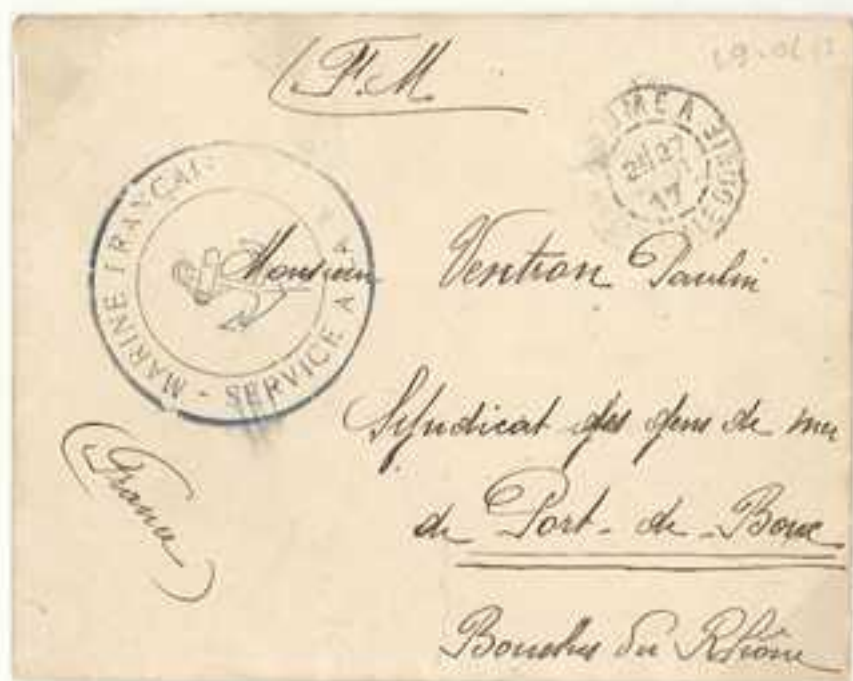 (F.M
MARINE FRANÇAI
- SERVICE A LA
17
Monsieur Ventron Paulin
Syndicat des gens de mer
de Port-de-Bouc
(France)
Bouches du Rhône